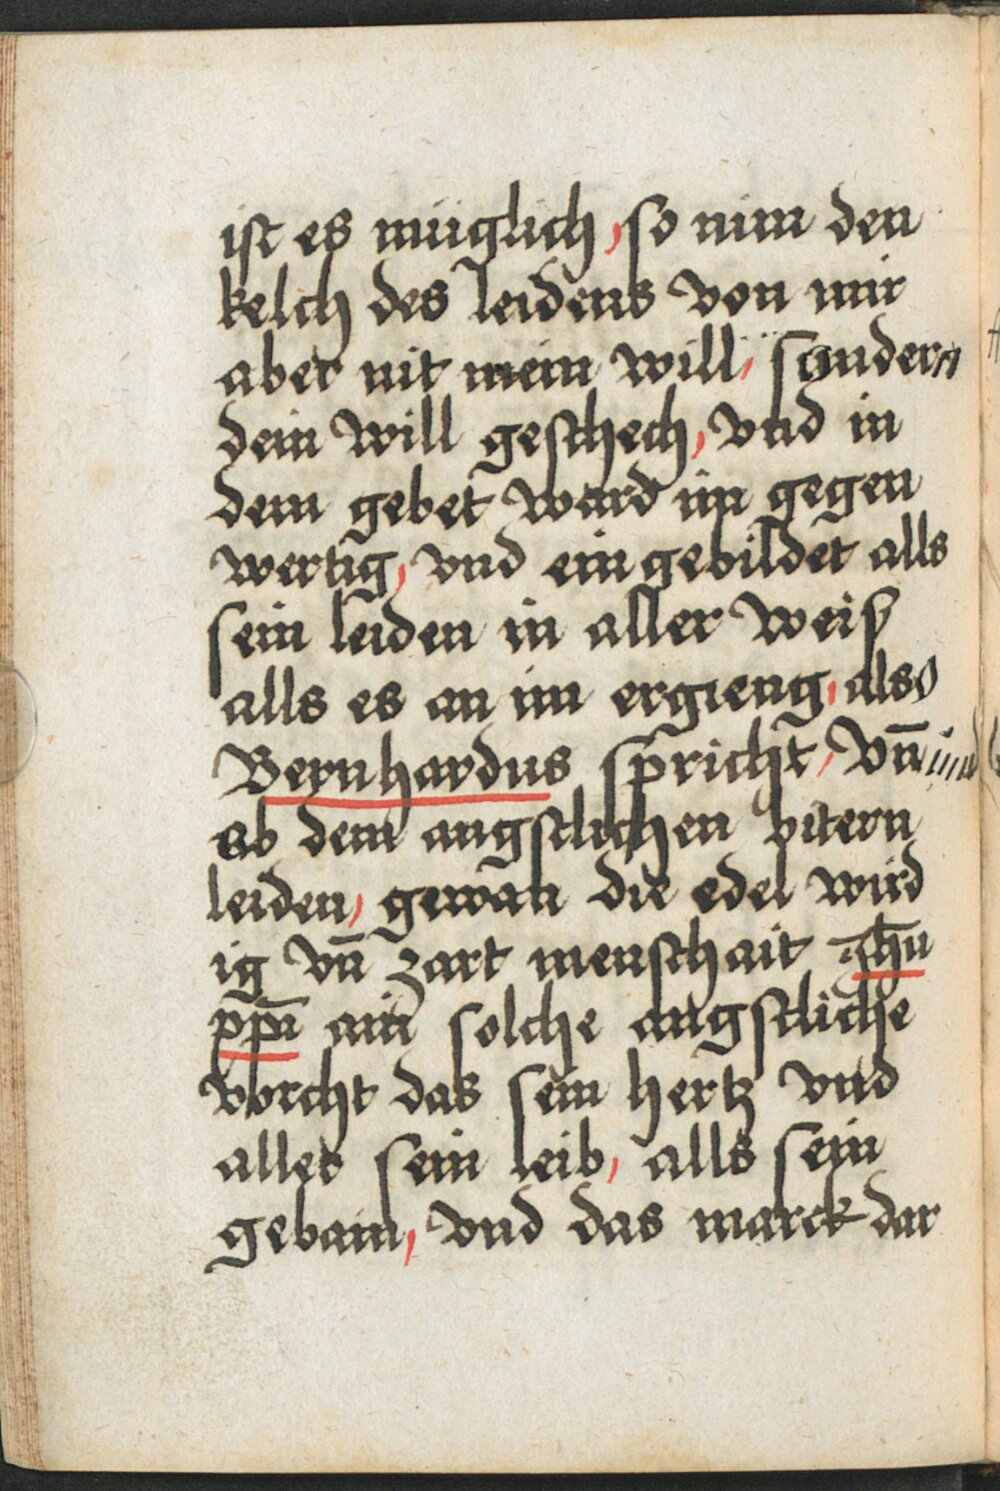 ist es müglich, so nim den
kelch des leidens von mir
aber nit mein will, sondern
dein will geschech, vnd in
dem gebet ward im gegen
wertig, vnd ein gebildet alls
sein leiden in aller weiß
alls es an im ergieng, also
Bernhardus spricht, vn̄
ab dem angstlichen bitern
leiden, gewan die edel wird
ig vn̄ zart menschait ih̄u
xp̄i ain solche angstliche
vorcht das sein hertz vnd
aller sein leib, alls sein
gebain, vnd das marck dar